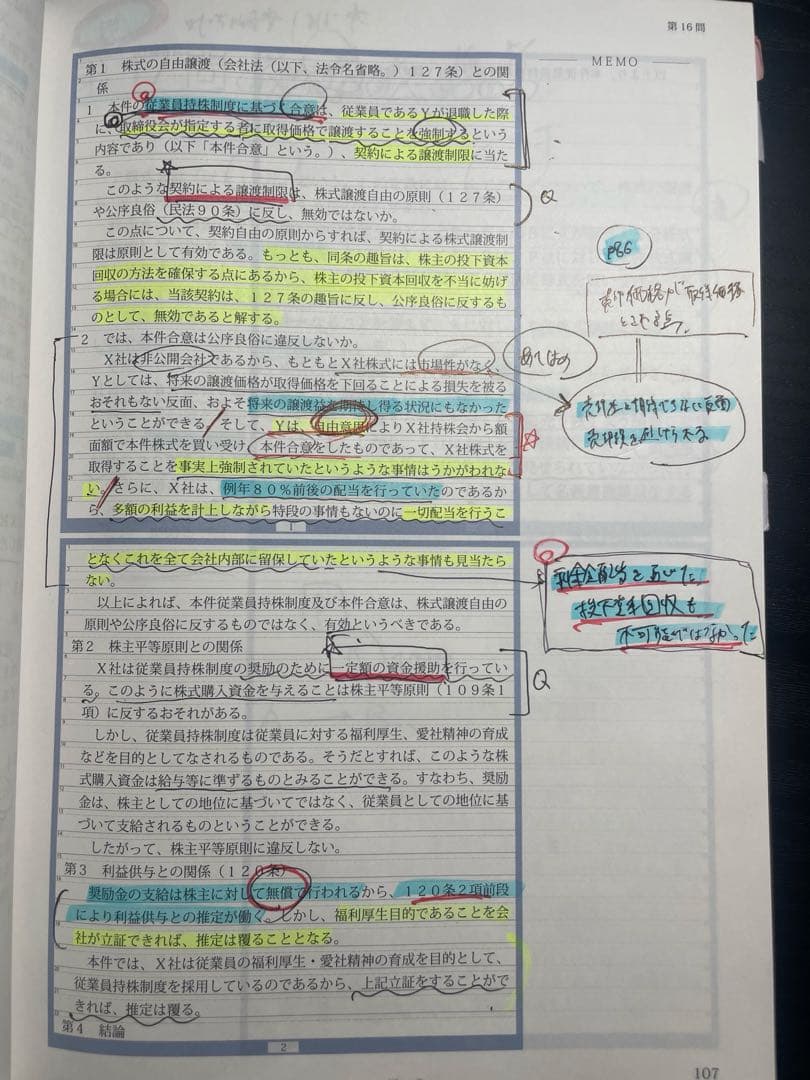 第16問
MEMO
第1　株式の自由譲渡（会社法（以下、法令名省略。）127条）との関
係
1　本件の従業員持株制度に基づく合意は、従業員であるYが退職した際
に、取締役会が指定する者に取得価格で譲渡することを強制するという
内容であり（以下「本件合意」という。）、契約による譲渡制限に当た
る。
このような契約による譲渡制限は、株式譲渡自由の原則（127条）
や公序良俗（民法90条）に反し、無効ではないか。
Q
この点について、契約自由の原則からすれば、契約による株式譲渡制
限は原則として有効である。もっとも、同条の趣旨は、株主の投下資本
回収の方法を確保する点にあるから、株主の投下資本回収を不当に妨げ
る場合には、当該契約は、127条の趣旨に反し、公序良俗に反するも
のとして、無効であると解する。
P86
売却価格が取得価格
とされる点。
2　では、本件合意は公序良俗に違反しないか。
X社は非公開会社であるから、もともとX社株式には市場性がなく、
Yとしては、将来の譲渡価格が取得価格を下回ることによる損失を被る
おそれもない反面、およそ将来の譲渡益を期待し得る状況にもなかった
ということができる。そして、Yは、自由意思によりX社持株会から額
面額で本件株式を買い受け、本件合意をしたものであって、X社株式を
取得することを事実上強制されていたというような事情はうかがわれな
い。さらに、X社は、例年80％前後の配当を行っていたのであるか
ら、多額の利益を計上しながら特段の事情もないのに一切配当を行うこ
1
あてはめ
となくこれを全て会社内部に留保していたというような事情も見当たら
ない。
以上によれば、本件従業員持株制度及び本件合意は、株式譲渡自由の
原則や公序良俗に反するものではなく、有効というべきである。
剰余金配当を通じた
投下資本回収も
不可能ではなかった
第2　株主平等原則との関係
X社は従業員持株制度の奨励のために一定額の資金援助を行ってい
る。このように株式購入資金を与えることは株主平等原則（109条1
項）に反するおそれがある。
Q
しかし、従業員持株制度は従業員に対する福利厚生、愛社精神の育成
などを目的としてなされるものである。そうだとすれば、このような株
式購入資金は給与等に準ずるものとみることができる。すなわち、奨励
金は、株主としての地位に基づいてではなく、従業員としての地位に基
づいて支給されるものということができる。
したがって、株主平等原則に違反しない。
第3　利益供与との関係（120条）
奨励金の支給は株主に対して無償で行われるから、120条2項前段
により利益供与との推定が働く。しかし、福利厚生目的であることを会
社が立証できれば、推定は覆ることとなる。
本件では、X社は従業員の福利厚生・愛社精神の育成を目的として、
従業員持株制度を採用しているのであるから、上記立証をすることがで
きれば、推定は覆る。
第4　結論
2
107